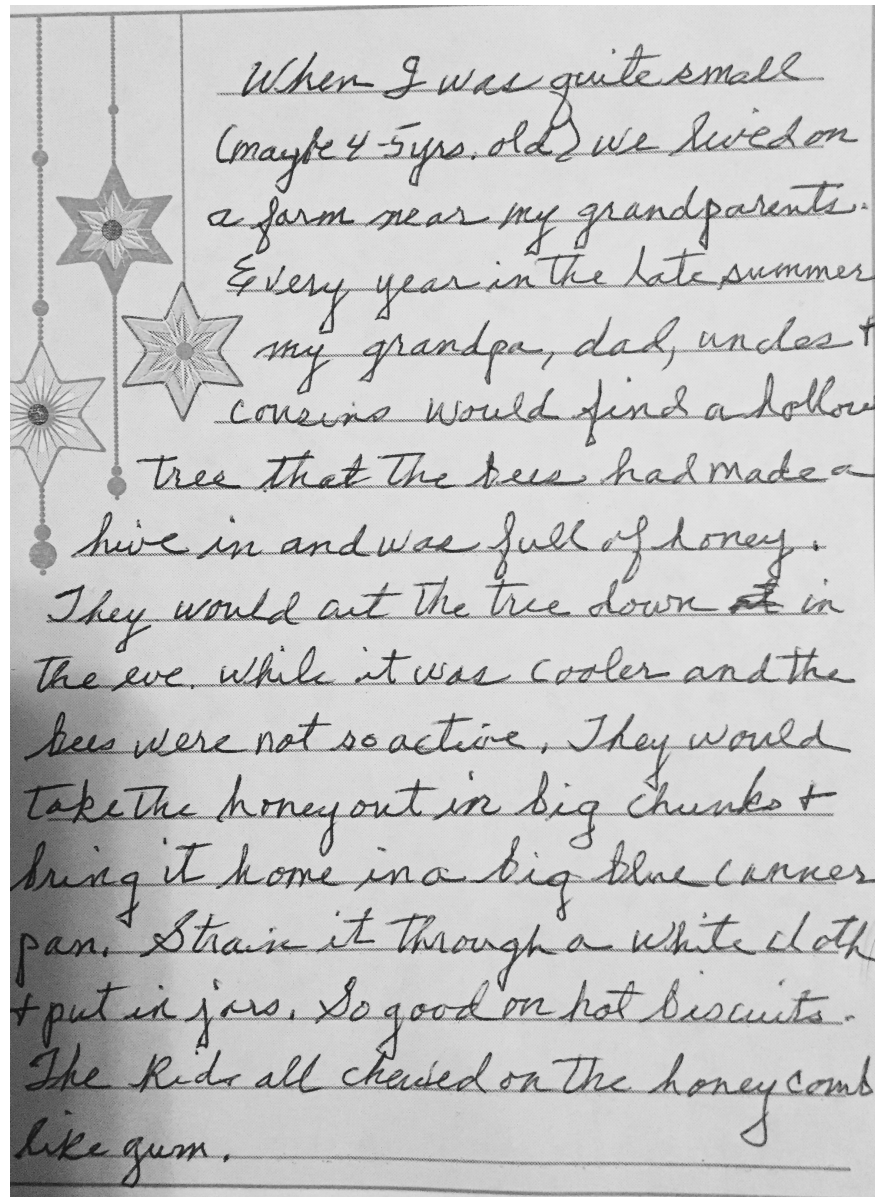 When I was quite small
(maybe 4-5yrs. old) we lived on
a farm near my grandparents.
Every year in the late summer
my grandpa, dad, uncles +
cousins would find a hollow
tree that the bees had made a
hive in and was full of honey.
They would cut the tree down in
the eve. while it was cooler and the
bees were not so active. They would
take the honey out in big chunks +
bring it home in a big blue canner
pan. Strain it through a white cloth
+ put in jars. So good on hot biscuits.
The Kids all chewed on the honey comb
like gum.